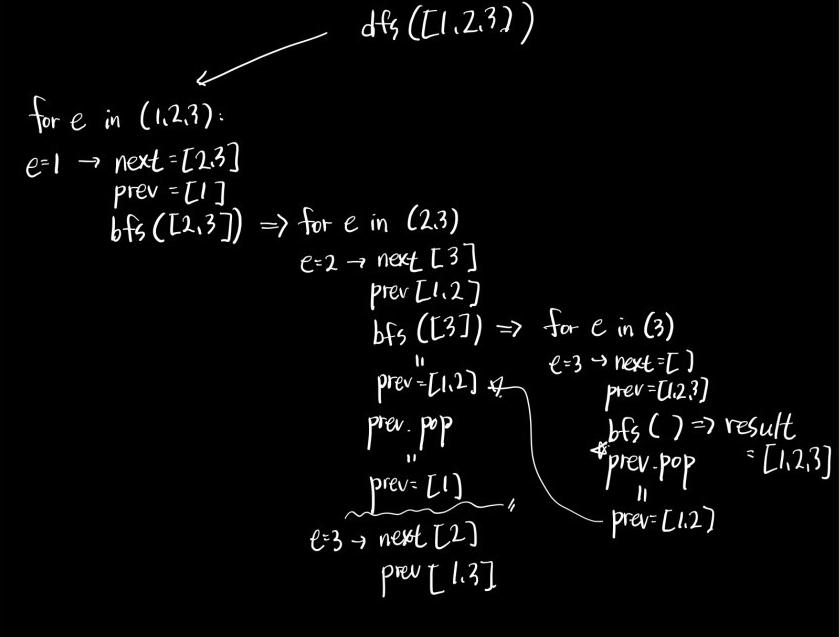 dfs([1,2,3])
for e in (1,2,3):
e=1 → next=[2,3]
prev=[1]
bfs([2,3]) ⇒ for e in (2,3)
e=2 → next[3]
prev[1,2]
bfs([3]) ⇒ for e in (3)
"
prev=[1,2]
prev.pop
"
prev=[1]
e=3 → next=[]
prev=[1,2,3]
bfs() ⇒ result
=[1,2,3]
prev.pop
"
prev=[1,2]
"
e=3 → next[2]
prev[1,3]